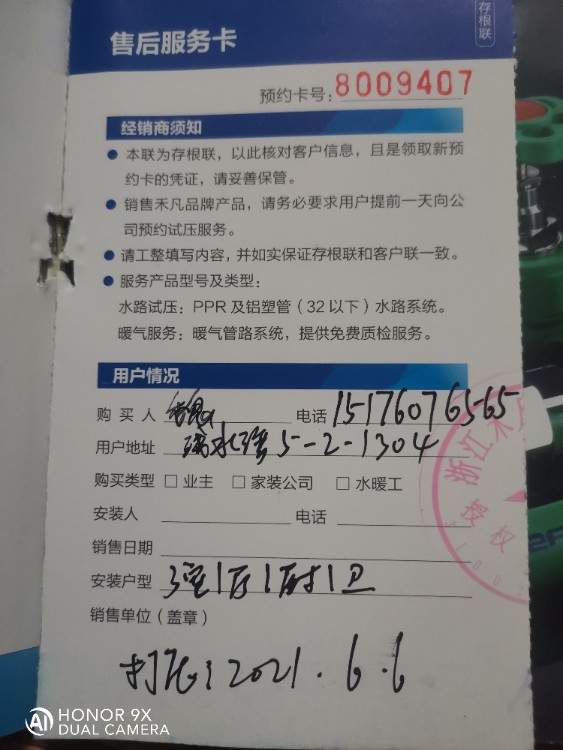 存根联
售后服务卡
预约卡号: 8009407
经销商须知
● 本联为存根联，以此核对客户信息，且是领取新预
约卡的凭证，请妥善保管。
● 销售禾凡品牌产品，请务必要求用户提前一天向公
司预约试压服务。
● 请工整填写内容，并如实保证存根联和客户联一致。
● 服务产品型号及类型：
水路试压：PPR及铝塑管（32以下）水路系统。
暖气服务：暖气管路系统，提供免费质检服务。
用户情况
购买人 电话 15176076565
用户地址 5-2-1304
购买类型 □ 业主 □ 家装公司 □ 水暖工
安装人 电话
销售日期
安装户型 3室1厅1厨1卫
销售单位（盖章）
打压：2021.6.6
浙江禾
授权
HONOR 9X
DUAL CAMERA